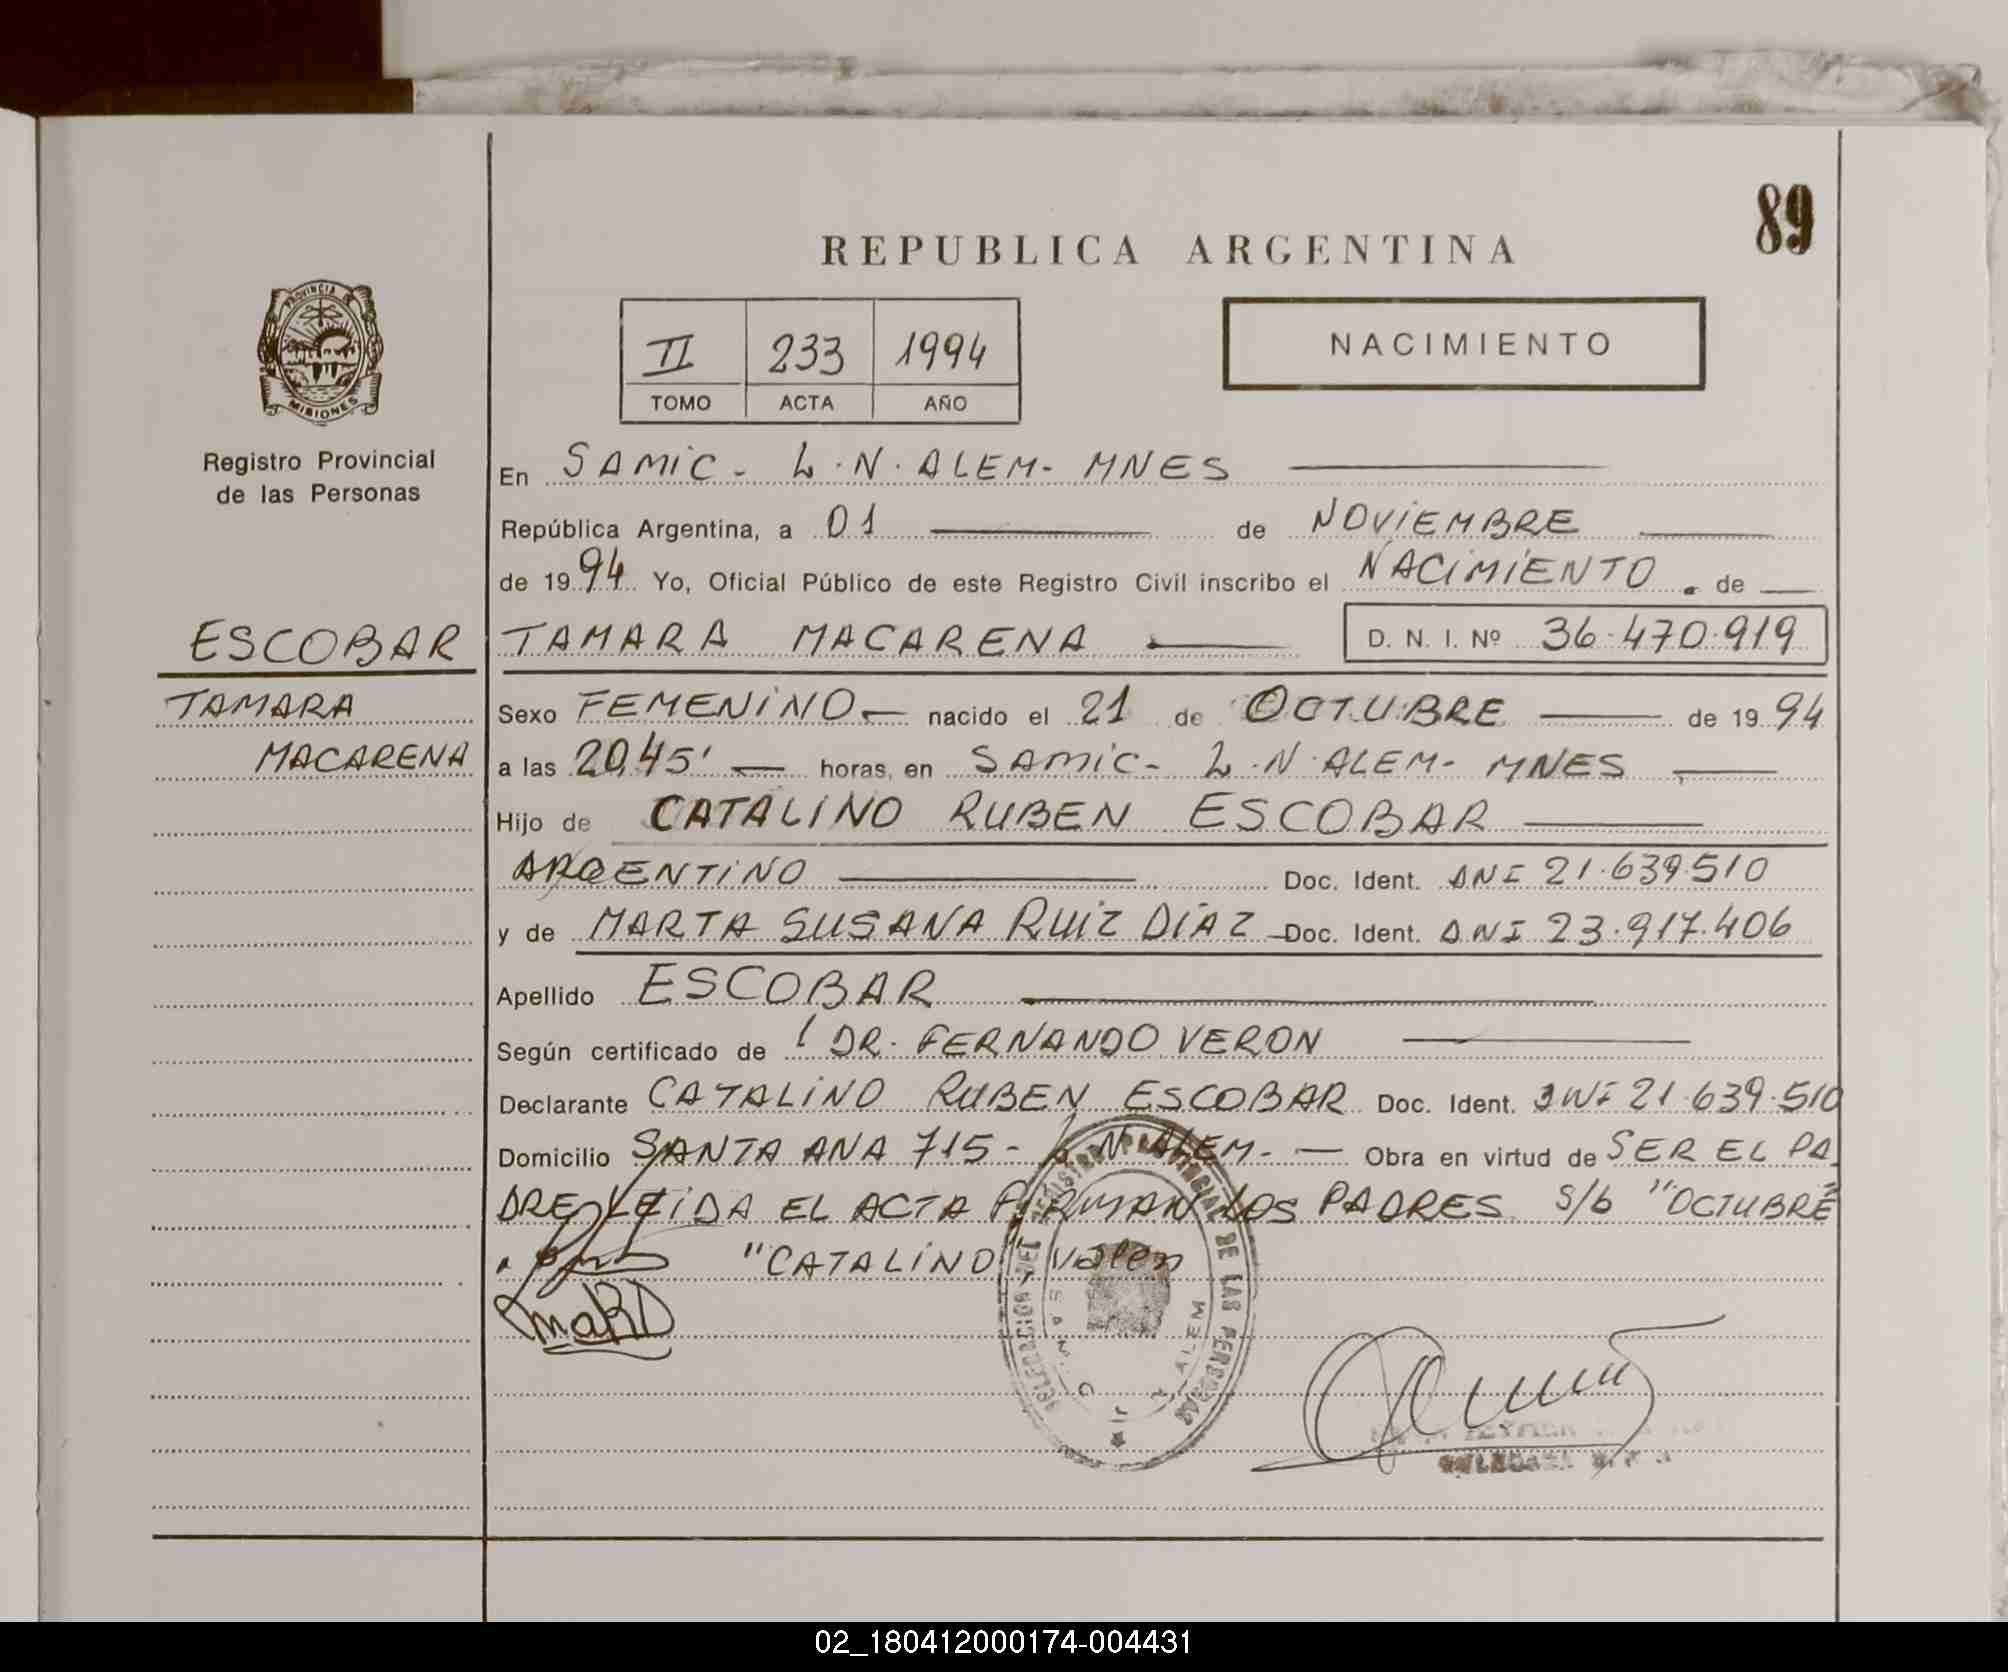 89
REPUBLICA ARGENTINA
PROVINCIA DE
MISIONES
Registro Provincial
de las Personas
II 233 1994
TOMO ACTA AÑO
NACIMIENTO
En SAMIC - L.N. ALEM - MNES
República Argentina, a 01 de NOVIEMBRE
de 1994 Yo, Oficial Público de este Registro Civil inscribo el NACIMIENTO. de
ESCOBAR
TAMARA
MACARENA
TAMARA MACARENA D. N. I. Nº 36.470.919
Sexo FEMENINO nacido el 21 de OCTUBRE de 1994
a las 20,45' horas, en SAMIC - L.N. ALEM - MNES
Hijo de CATALINO RUBEN ESCOBAR
ARGENTINO Doc. Ident. DNI 21.639.510
y de MARTA SUSANA RUIZ DIAZ Doc. Ident. DNI 23.917.406
Apellido ESCOBAR
Según certificado de DR. FERNANDO VERON
Declarante CATALINO RUBEN ESCOBAR Doc. Ident. DNI 21.639.510
Domicilio SANTA ANA 715 - L.N. ALEM. - Obra en virtud de SER EL PA
DRE LEIDA EL ACTA FIRMAN LOS PADRES S/b "OCTUBRE"
"CATALINO" valen
DELEGACION DEL REGISTRO PROVINCIAL DE LAS PERSONAS
ALEM
02_180412000174-004431